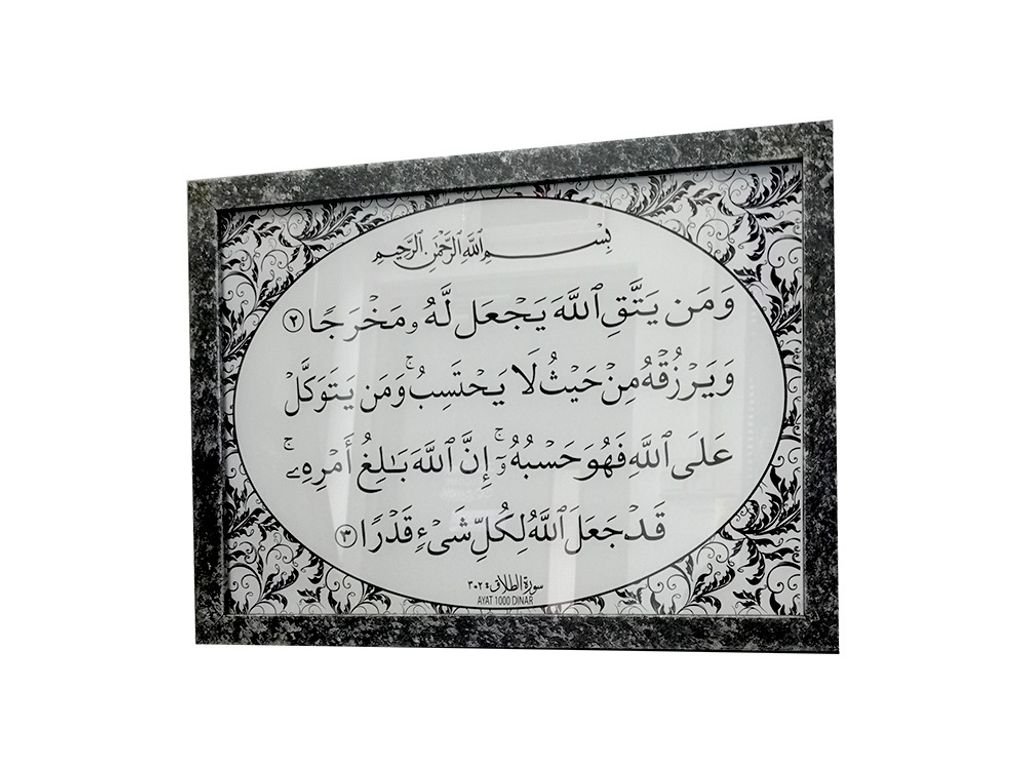 بِسْمِ اللَّهِ الرَّحْمَٰنِ الرَّحِيمِ
وَمَن يَتَّقِ ٱللَّهَ يَجْعَل لَّهُۥ مَخْرَجًا ٢
وَيَرْزُقْهُ مِنْ حَيْثُ لَا يَحْتَسِبُ ۚ وَمَن يَتَوَكَّلْ
عَلَى ٱللَّهِ فَهُوَ حَسْبُهُۥٓ ۚ إِنَّ ٱللَّهَ بَٰلِغُ أَمْرِهِۦ ۚ
قَدْ جَعَلَ ٱللَّهُ لِكُلِّ شَىْءٍ قَدْرًا ٣
سورة الطلاق ٢-٣
AYAT 1000 DINAR